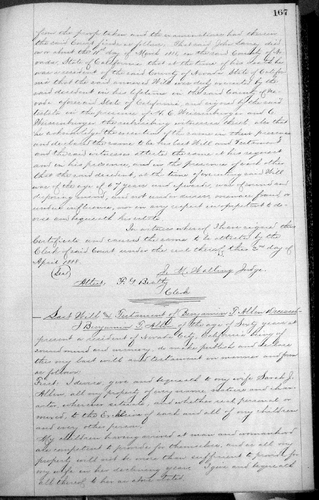 167
from the proof taken and the examination had therein
the said Court finds as follows: That said John Casey died
on about the day of March 188 in the said County of Ne-
vada State of California, that at the time of his death he
was a resident of the said County of Nevada State of Califor-
nia that the said annexed Will was duly executed by the
said decedent in his lifetime in the said County of Ne-
vada aforesaid State of California, and signed by the said
testator in the presence of and C
the subscribing witnesses thereto that
he acknowledged the execution of the same in their presence
and declared the same to be his last Will and Testament
and the said witnesses attested the same at his request
and in his presence, and in the presence of each other
that the said decedent, at the time of executing said Will
was of the age of years and upwards was of sound and
disposing mind, and not under duress menace fraud or
undue influence, nor in any respect incompetent to de-
vise and bequeath his estate
In witness whereof I have signed this
Certificate and caused the same to be attested by the
Clerk of said Court under the seal thereof this day of
April 188
(Seal) Judge
Attest. F. G. Beatty
Clerk
Last Will & Testament of Benjamin T. Deceased
I Benjamin T. of the age of years and at
present a resident of Nevada City, California being of
sound mind and memory do make publish and declare
this my last will and testament in manner and form
as follows:
First: I devise, give and bequeath to my wife Sarah J.
all my property of any name, nature and char-
acter, wherever situated, and whether real personal or
mixed, to the Exclusion of each and all of my children
and every other person.
My children having arrived at man and womanhood
are competent to provide for themselves, and as all my
property will not be more than sufficient to provide for
my wife in her declining years I give and bequeath
all thereof to her as above stated.